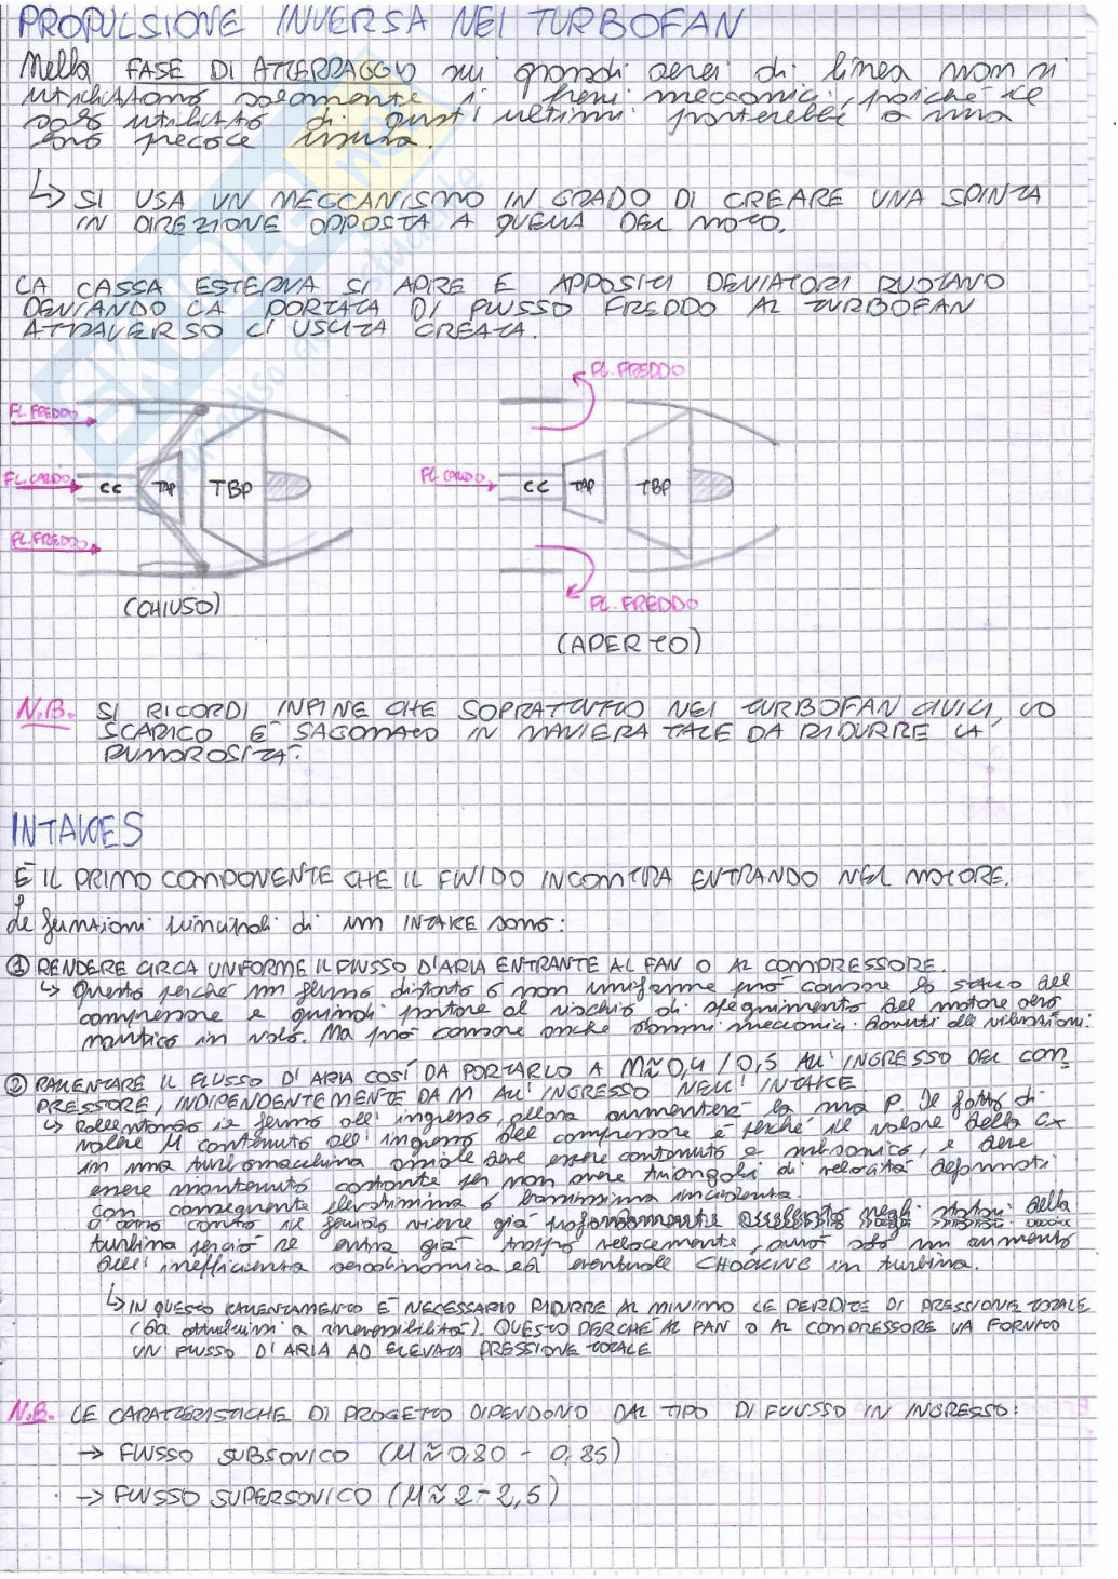 PROPULSIONE INVERSA NEI TURBOFAN
Nella FASE DI ATTERRAGGIO sui grandi aerei di linea non si
utilizzano solamente i freni meccanici, poiché il
solo utilizzo di questi ultimi porterebbe a una
loro precoce usura.
↳ SI USA UN MECCANISMO IN GRADO DI CREARE UNA SPINTA
IN DIREZIONE OPPOSTA A QUELLA DEL MOTO.
LA CASSA ESTERNA SI APRE E APPOSITI DEVIATORI RUOTANO
DEVIANDO LA PORTATA DI FLUSSO FREDDO AL TURBOFAN
ATTRAVERSO L'USCITA CREATA.
FL. FREDDO
FL. FREDDO
FL. CALDO
CC TAP TBP
FL. CALDO
CC TAP TBP
FL. FREDDO
FL. FREDDO
(CHIUSO)
(APERTO)
N.B. SI RICORDI INFINE CHE SOPRATTUTTO NEI TURBOFAN CIVILI, LO
SCARICO È SAGOMATO IN MANIERA TALE DA RIDURRE LA
RUMOROSITÀ.
INTAKES
È IL PRIMO COMPONENTE CHE IL FLUIDO INCONTRA ENTRANDO NEL MOTORE.
Le funzioni principali di un INTAKE sono:
① RENDERE CIRCA UNIFORME IL FLUSSO D'ARIA ENTRANTE AL FAN O AL COMPRESSORE.
↳ Questo perché un flusso distorto o non uniforme può causare lo stallo del
compressore e quindi portare al rischio di spegnimento del motore aero
nautico in volo. Ma può causare anche danni meccanici dovuti alle vibrazioni.
② RALLENTARE IL FLUSSO DI ARIA COSÌ DA PORTARLO A M≈0,4/0,5 ALL'INGRESSO DEL COM
PRESSORE, INDIPENDENTEMENTE DA M ALL'INGRESSO NELL'INTAKE
↳ Rallentando il flusso all'ingresso, allora aumenterà la sua P. Il fatto di
volere M contenuto all'ingresso del compressore è perché il valore della Cx
in una turbomacchina assiale deve essere contenuto e subsonico, e deve
essere mantenuto costante per non avere triangoli di velocità deformati
con conseguente
il fluido viene già profondamente negli statori della
turbina perciò se entra già troppo velocemente, avrò solo un aumento
dell'inefficienza aerodinamica ed eventuale CHOCKING in turbina.
↳ IN QUESTO RALLENTAMENTO È NECESSARIO RIDURRE AL MINIMO LE PERDITE DI PRESSIONE TOTALE
(da attribuirsi a irreversibilità). QUESTO PERCHÉ AL FAN O AL COMPRESSORE VA FORNITO
UN FLUSSO D'ARIA AD ELEVATA PRESSIONE TOTALE
N.B. LE CARATTERISTICHE DI PROGETTO DIPENDONO DAL TIPO DI FLUSSO IN INGRESSO:
→ FLUSSO SUBSONICO (M≈0,80 - 0,85)
→ FLUSSO SUPERSONICO (M≈2-2,5)